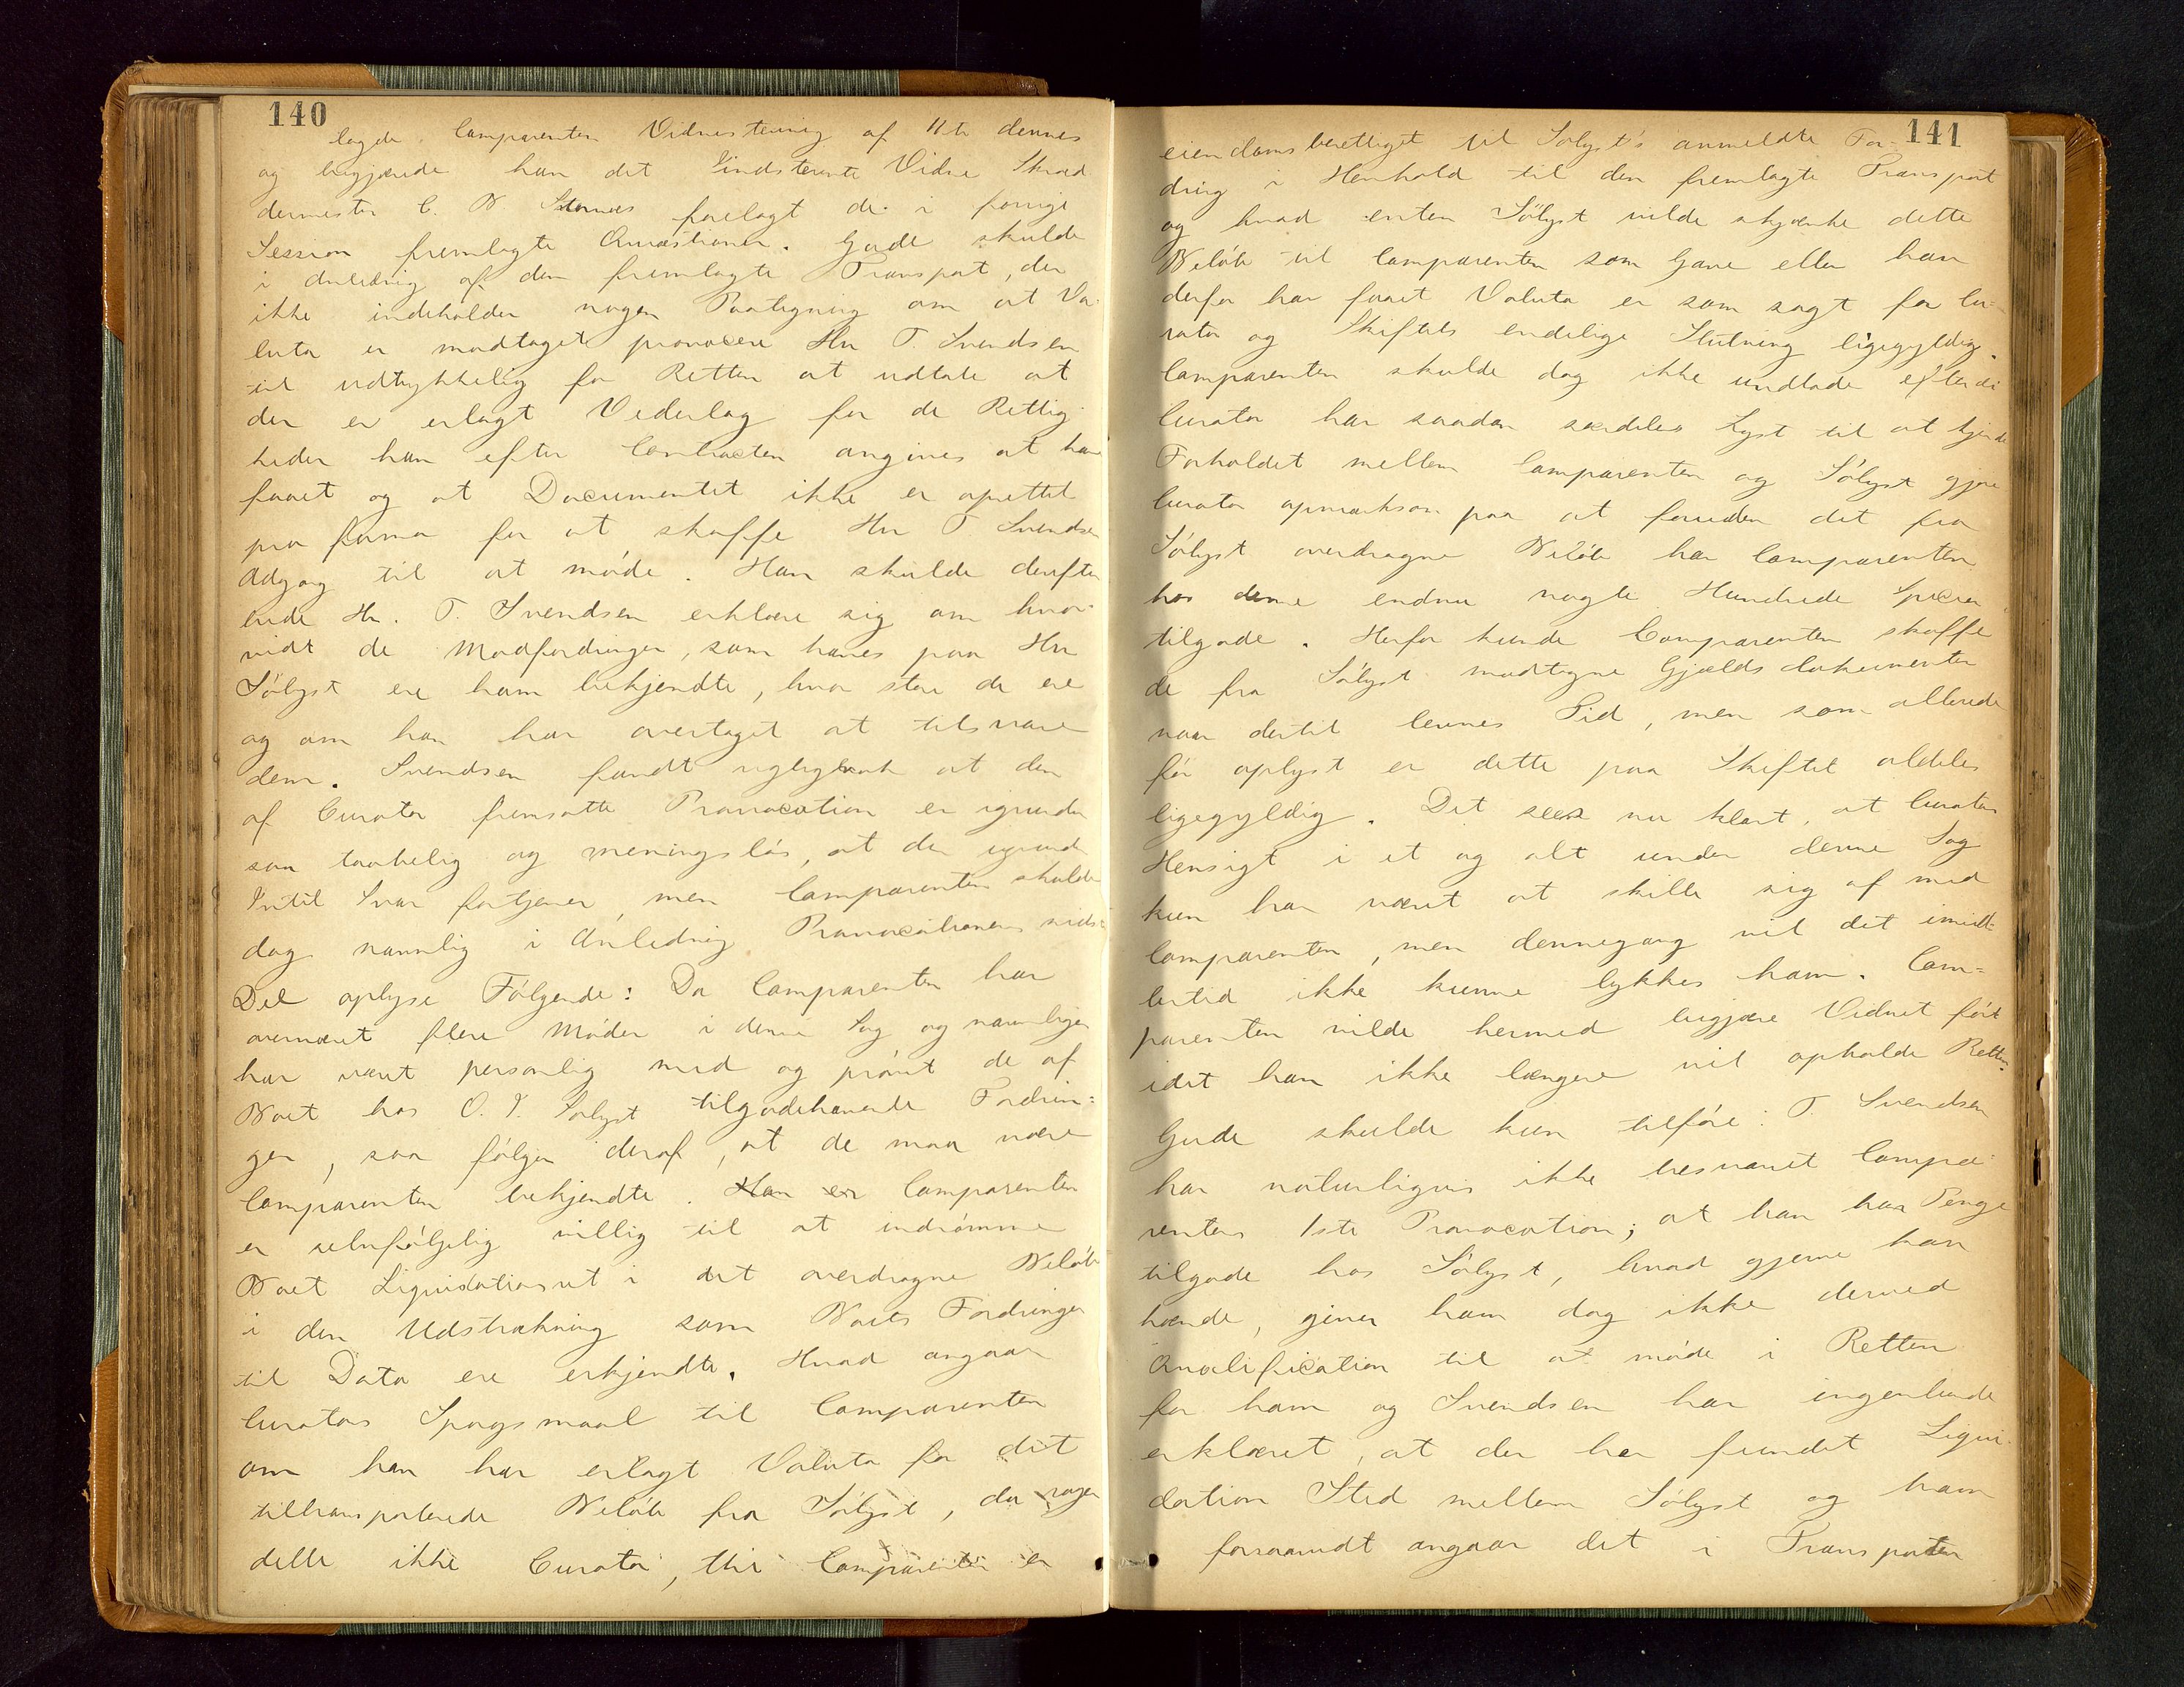 140
lagde Comparenten Vidnestevning af 11te dennes
og begjærede han det Vindstevnte Vidne Skræd
dermester C. N Stornæs forelagt de i forrige
Session fremlagte Qvæstioner. Gude skulde
i Anledning af den fremlagte Transport, der
ikke indeholder nogen Paategning om at Va-
luta er modtaget provocere Hr T. Svendsen
til udtrykkelig for Retten at udtale at
der er erlagt Vederlag for de Rettig
heder han efter Contracten angives at have
faaet og at Documentet ikke er oprettet
pro forma for at skaffe Hr T Svendsen
Adgang til at møde. Han skulde derefter
bede Hr. T. Svendsen erklære sig om hvor-
vidt de Modfordringer, som haves paa Hr
Sölyst ere ham bekjendte, hvor store de ere
og om han har overtaget at tilsvare
dem. Svendsen fandt at den
af Curator fremsatte Provocation er igrunden
saa taabelig og meningslös, at den igrunden
Intet Svar fortjener, men Comparenten skulde
dog navnlig i Anledning Provocationens sidste
Del oplyse Fölgende: Da Comparenten har
overværet flere Möder i denne Sag og navnligen
har været personlig med og prövet de af
Boet hos O. I. Sølyst tilgodehavende Fordrin=
ger, saa fölger deraf, at de maa være
Comparenten bekjendte. Han er Comparenten
er selvfölgelig villig til at indrömme
Boet Liquidationsret i det overdragne Belöb
i den Udstrækning som Boets Fordringer
til Dato ere erkjendte. Hvad angaar
Curators Spørgsmaal til Comparenten
om han har erlagt Valuta for det
tiltransporterede Belöb fra Sölyst, da rager
dette ikke Curator, thi Comparenten er
141
eiendomsberettiget til Sølyst's anmeldte For-
dring i Henhold til den fremlagte Transport
og hvad enten Sölyst vilde skjænke dette
Belöb til Comparenten som Gave eller han
derfor har faaet Valuta er som sagt for Cu-
rator og Skiftets endelige Slutning ligegyldig.
Comparenten skulde dog ikke undlade efterdi
Curator har saadan særdeles Lyst til at kjende
Forholdet mellem Comparenten og Sölyst gjøre
Curator opmærksom paa at foruden det fra
Sölyst overdragne Belöb har Comparenten
hos denne endnu nogle Hundrede Specier
tilgode. Herfor kunde Comparenten skaffe
de fra Sölyst modtagne Gjældsdokumenter
naar dertil levnes Tid, men som allerede
för oplyst er dette paa Skiftet aldeles
ligegyldig. Det sees nu klart, at Curators
Hensigt i et og alt under denne Sag
kun har været at skille sig af med
Comparenten, men dennegang vil det imid-
lertid ikke kunne lykkes ham. Com=
parenten vilde hermed begjære Vidnet fört
idet han ikke længere vil opholde Retten.
Gude skulde kun tilføre: T. Svendsen
har naturligvis ikke besvaret Compa-
rentens 1ste Provocation; at han har Penge
tilgode hos Sölyst, hvad gjerne kan
hænde, giver ham dog ikke derved
Qvalification til at møde i Retten
for ham og Svendsen har ingenlunde
erklæret, at der har fundet Liqui-
dation Sted mellem Sölyst og ham
forsaavidt angaar det i Transporten